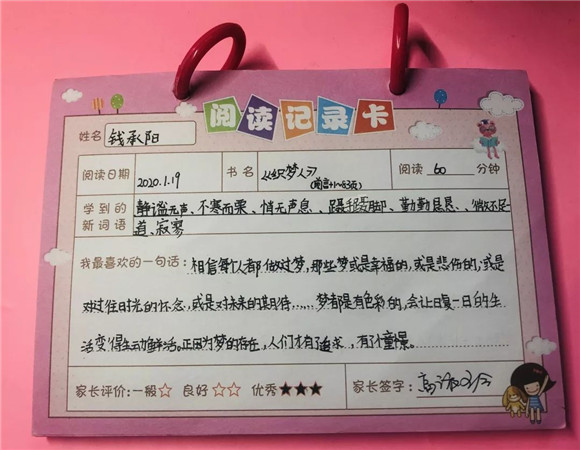 阅读记录卡
姓名 钱承阳
阅读日期 2020.1.19 书名 《织梦人》 阅读 60 分钟
(前言+1~63页)
学到的 静谧无声、不寒而栗、悄无声息、蹑手蹑脚、勤勤恳恳、微不足
新词语 道、寂寥
我最喜欢的一句话：相信每个人都做过梦，那些梦或是幸福的，或是悲伤的；或是
对过往时光的怀念，或是对未来的期待……梦都是有色彩的，会让日复一日的生
活变得生动鲜活。正因为梦的存在，人们才有了追求，有了憧憬。
家长评价：一般☆ 良好☆☆ 优秀★★★ 家长签字：